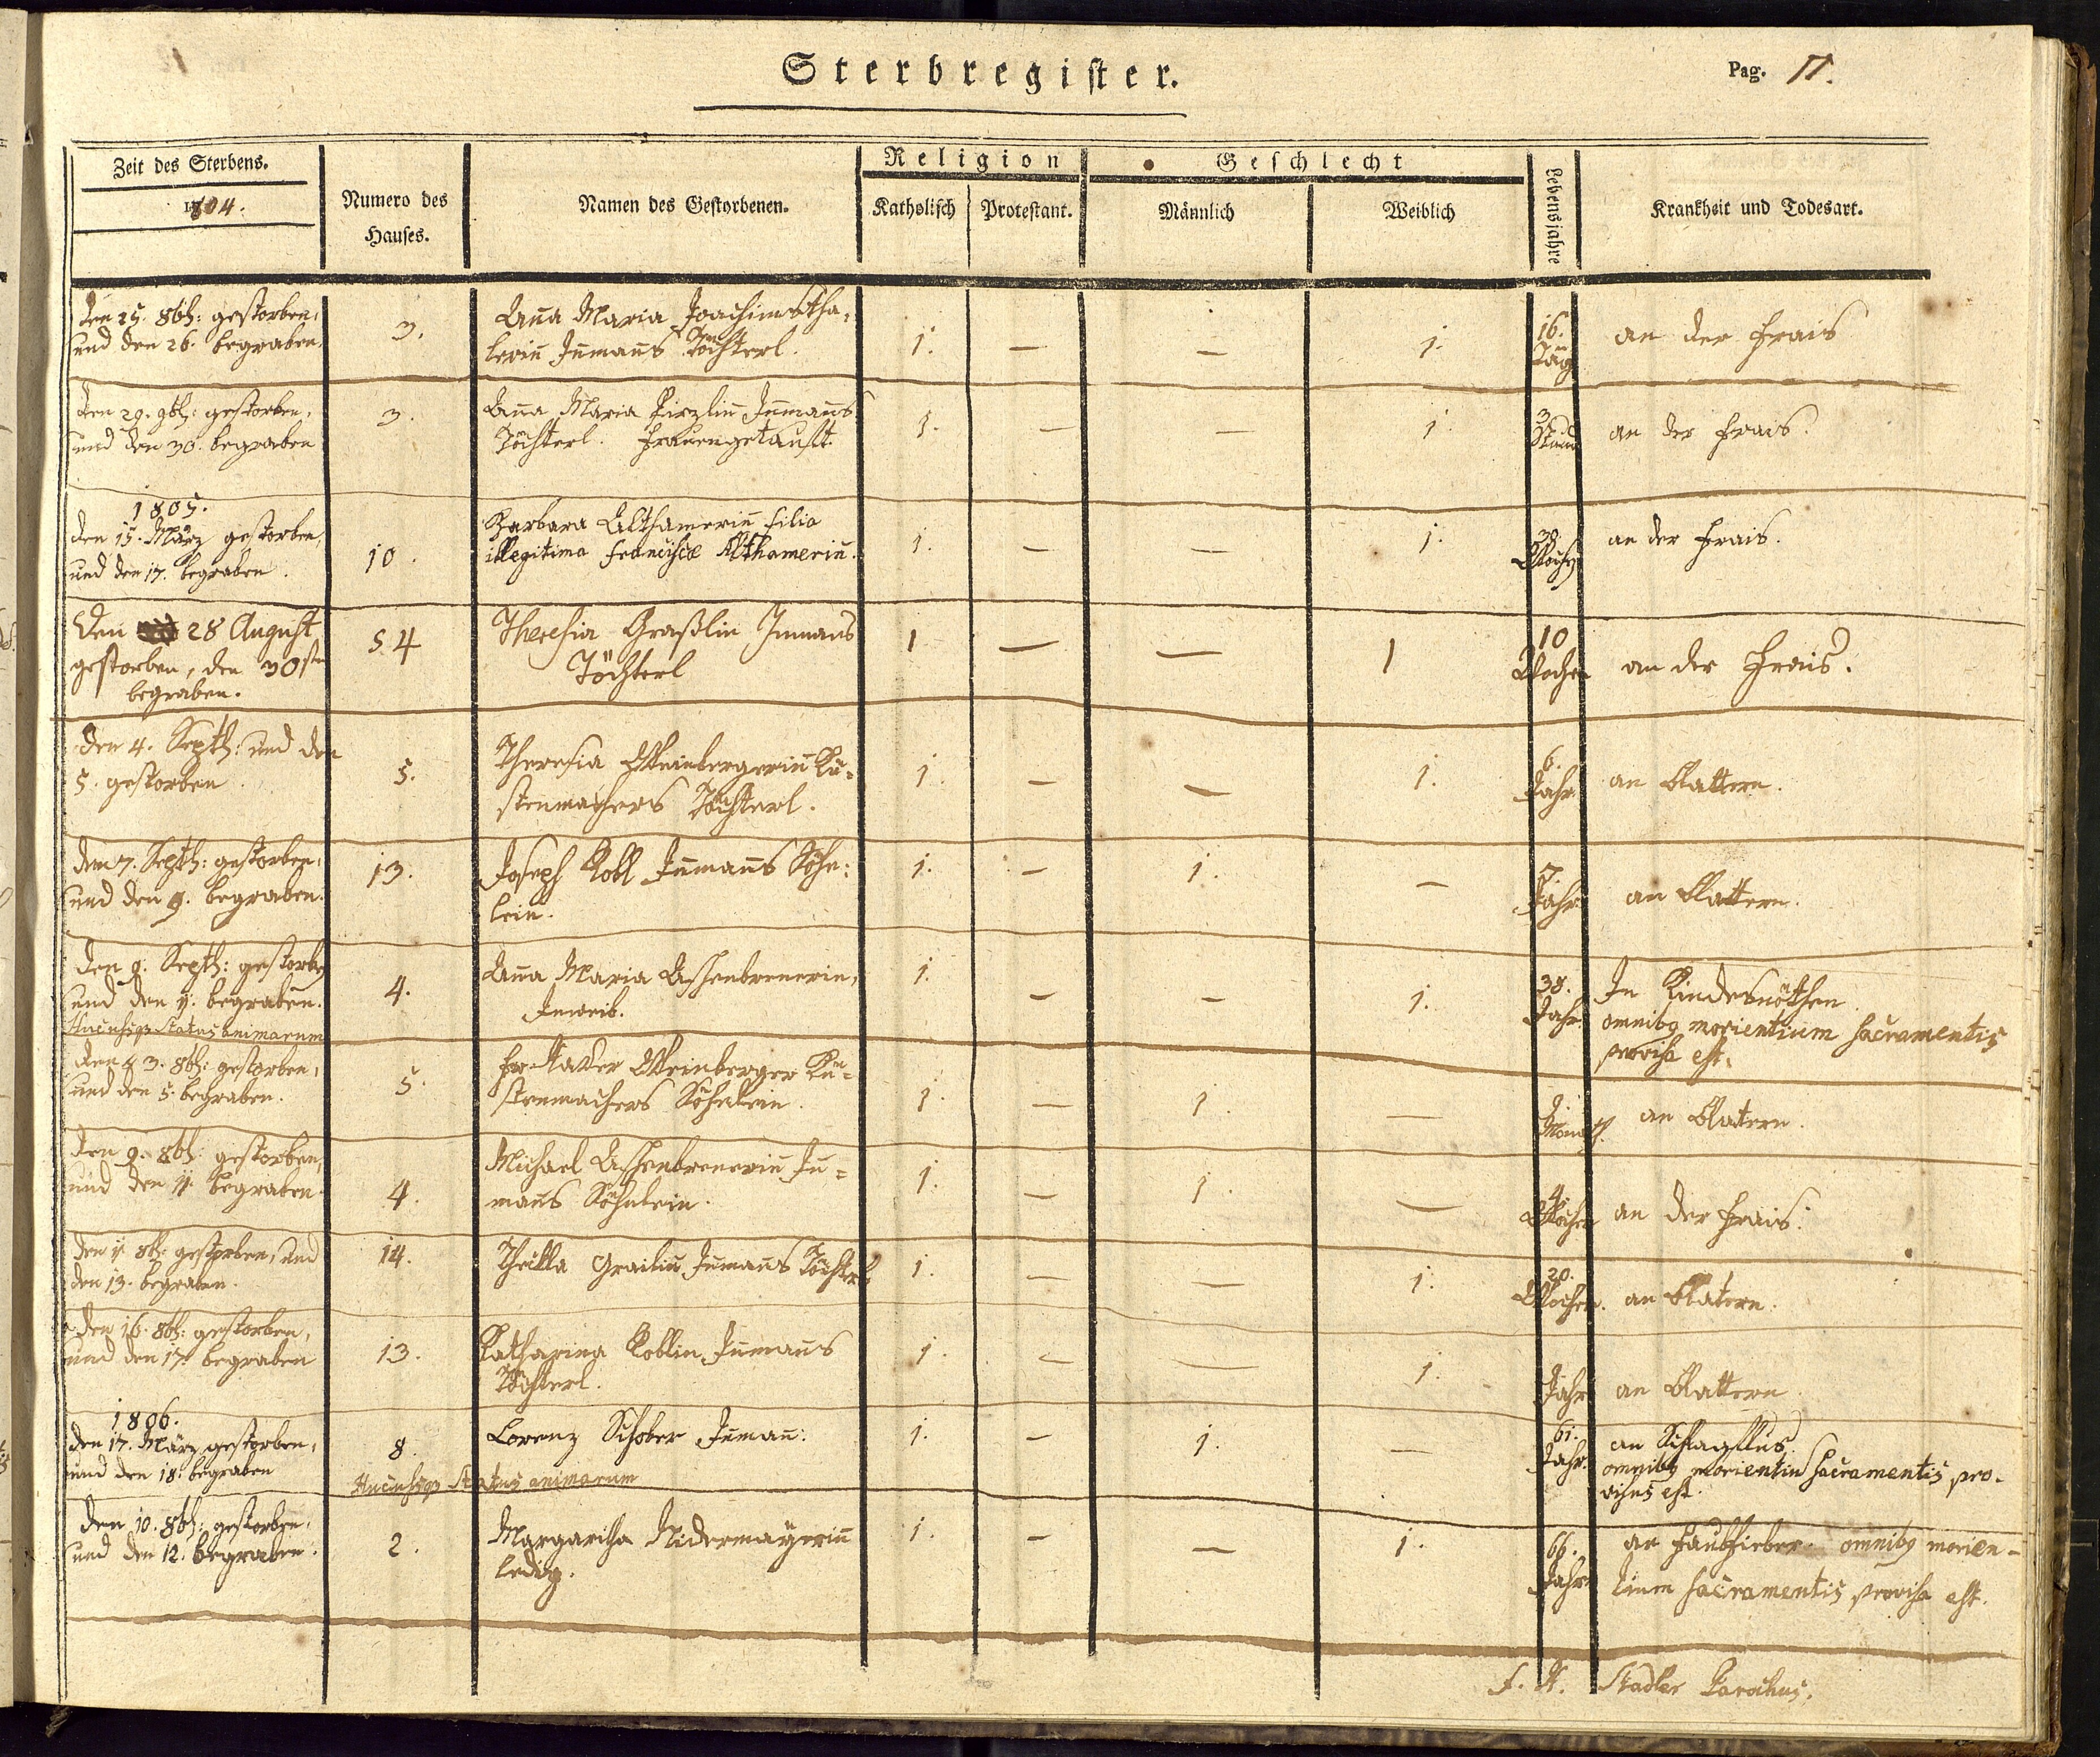 Sterbregister.
Pag. 11.
Zeit des Sterbens.
1804.
Numero des
Hauses.
Namen des Gestorbenen.
Religion
Katholisch
Protestant.
Geschlecht
Männlich
Weiblich
Lebensjahre
Krankheit und Todesart.
den 25. 8br: gestorben,
und den 26. begraben.
3.
Anna Maria Joachimstha-
lerin Inmanns Töchterl.
1. — — 1.
16.
Täg
an der Frais
den 29. 9br: gestorben,
und den 30. begraben
3.
Anna Maria Inmanns
Töchterl. Frauengetauft.
1. — — 1.
3
Stund
an der Frais.
1805.
den 15. März gestorben,
und den 17. begraben.
10.
Barbara Althamerin filia
illegitima Franciscæ Althamerin.
1. — — 1.
30.
Wochen
an der Frais.
Den 28 August
gestorben, den 30sten
begraben.
54
Theresia Graßlin Inmans
Töchterl
1 — — 1
10
Wochen
an der Frais.
den 4. Septb: und den
5. gestorben
5.
Theresia Weinbergerin Kü-
stenmachers Töchterl.
1. — — 1.
6.
Jahr
an Blattern.
den 7. Septb: gestorben,
und den 9. begraben.
13.
Joseph Kobl Inmanns Söhn:
lein.
1. — 1. —
7.
Jahr
an Blattern.
den 9. Septb: gestorben
und den 11. begraben.
Hucusque Status animarum
4.
Anna Maria Aschenbrenerin,
Inweib.
1. — — 1.
38.
Jahr.
In Kindesnöthen
omnibus morientium sacramentis
provisa est.
den 3. 8br: gestorben,
und den 5. begraben.
5.
Fr. Xaver Weinberger Kü-
stenmachers Söhnlein.
1. — 1. —
Monath.
an Blatern.
den 9. 8br: gestorben,
und den 11. begraben.
4.
Michael Aschenbrenerin In-
mans Söhnlein.
1. — 1. —
4.
Wochen
an der Frais.
den 11. 8br: gestorben, und
den 13. begraben.
14.
Thekla Grailin Inmanns Töchterl
1. — — 1.
20.
Wochen.
an Blatern.
den 16. 8br: gestorben,
und den 17. begraben
13.
Katharina Koblin Inmanns
Töchterl.
1. — — 1.
Jahr
an Blattern
1806.
den 17. März gestorben,
und den 18. begraben
8.
Hucusque Status animarum
Lorenz Schober Inmann.
1. — 1. —
61.
Jahr.
an Schlagfluß.
omnibus morientiu sacramentis pro-
visus est.
den 10. 8br: gestorben,
und den 12. begraben.
2.
Margaritha Nidermayerin
ledig.
1. — — 1.
66.
Jahr
an Faulfieber. omnibus morien-
tium sacramentis provisa est.
F. X. Stadler Parochus.